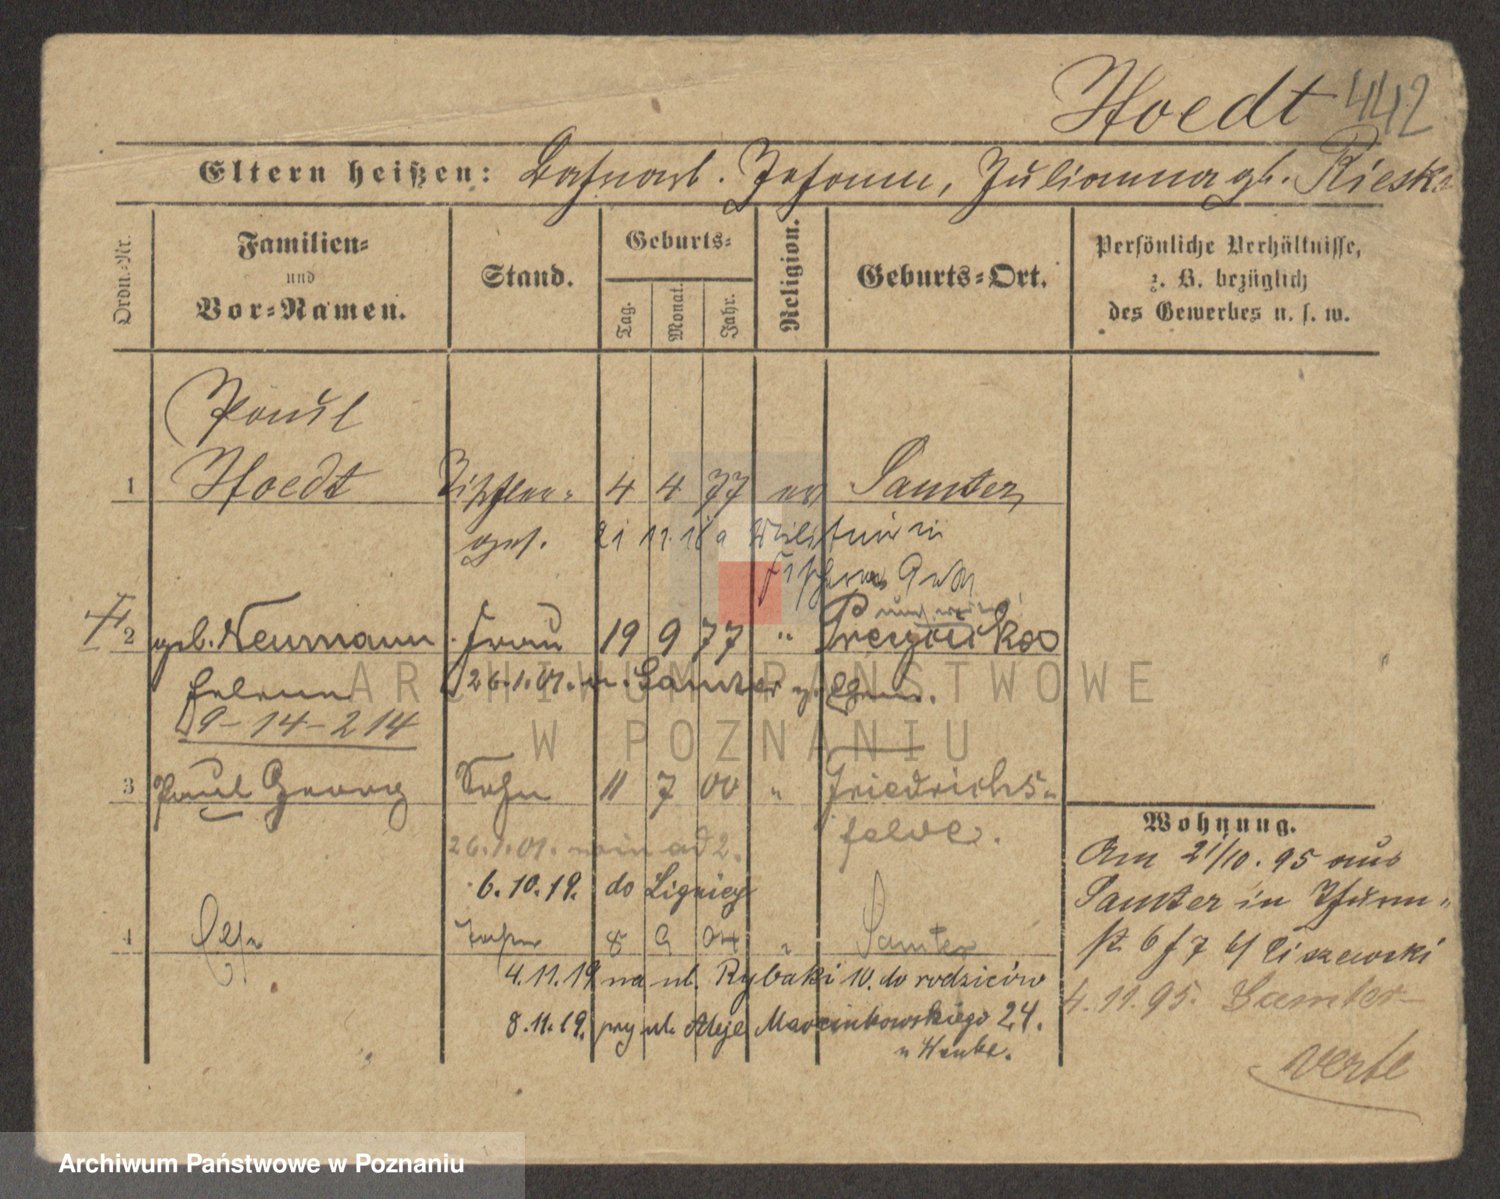 Hoedt 442
Eltern heißen: Johann, Julianna gb. Rieske
Ordn.-Nr.
Familien-
und
Vor-Namen.
Stand.
Geburts-
Tag.
Monat.
Jahr.
Religion.
Geburts-Ort.
Persönliche Verhältnisse,
z. B. bezüglich
des Gewerbes u. s. w.
Paul
1 Hoedt Tischler- 4 4 77 ev Samter
ges.
2 geb. Neumann Frau 19 9 77 "
Helene 26.1.01. Samter z. Ehem.
9-14-214
3 Paul Georg Sohn 11 7 00 " Friedrichs-
felde.
26.1.01. ad 2.
6.10.19. do Lignicy
4 8 9 04 " Samter
4.11.19 na ul. Rybaki 10. do rodziców
8.11.19. przy ul. Aleje Marcinkowskiego 24.
Wohnung.
Am 21/10. 95 aus
Samter in Thurm-
str. 6 b/
4.11.95. Samter
verte
ARCHIWUM PAŃSTWOWE
W POZNANIU
Archiwum Państwowe w Poznaniu